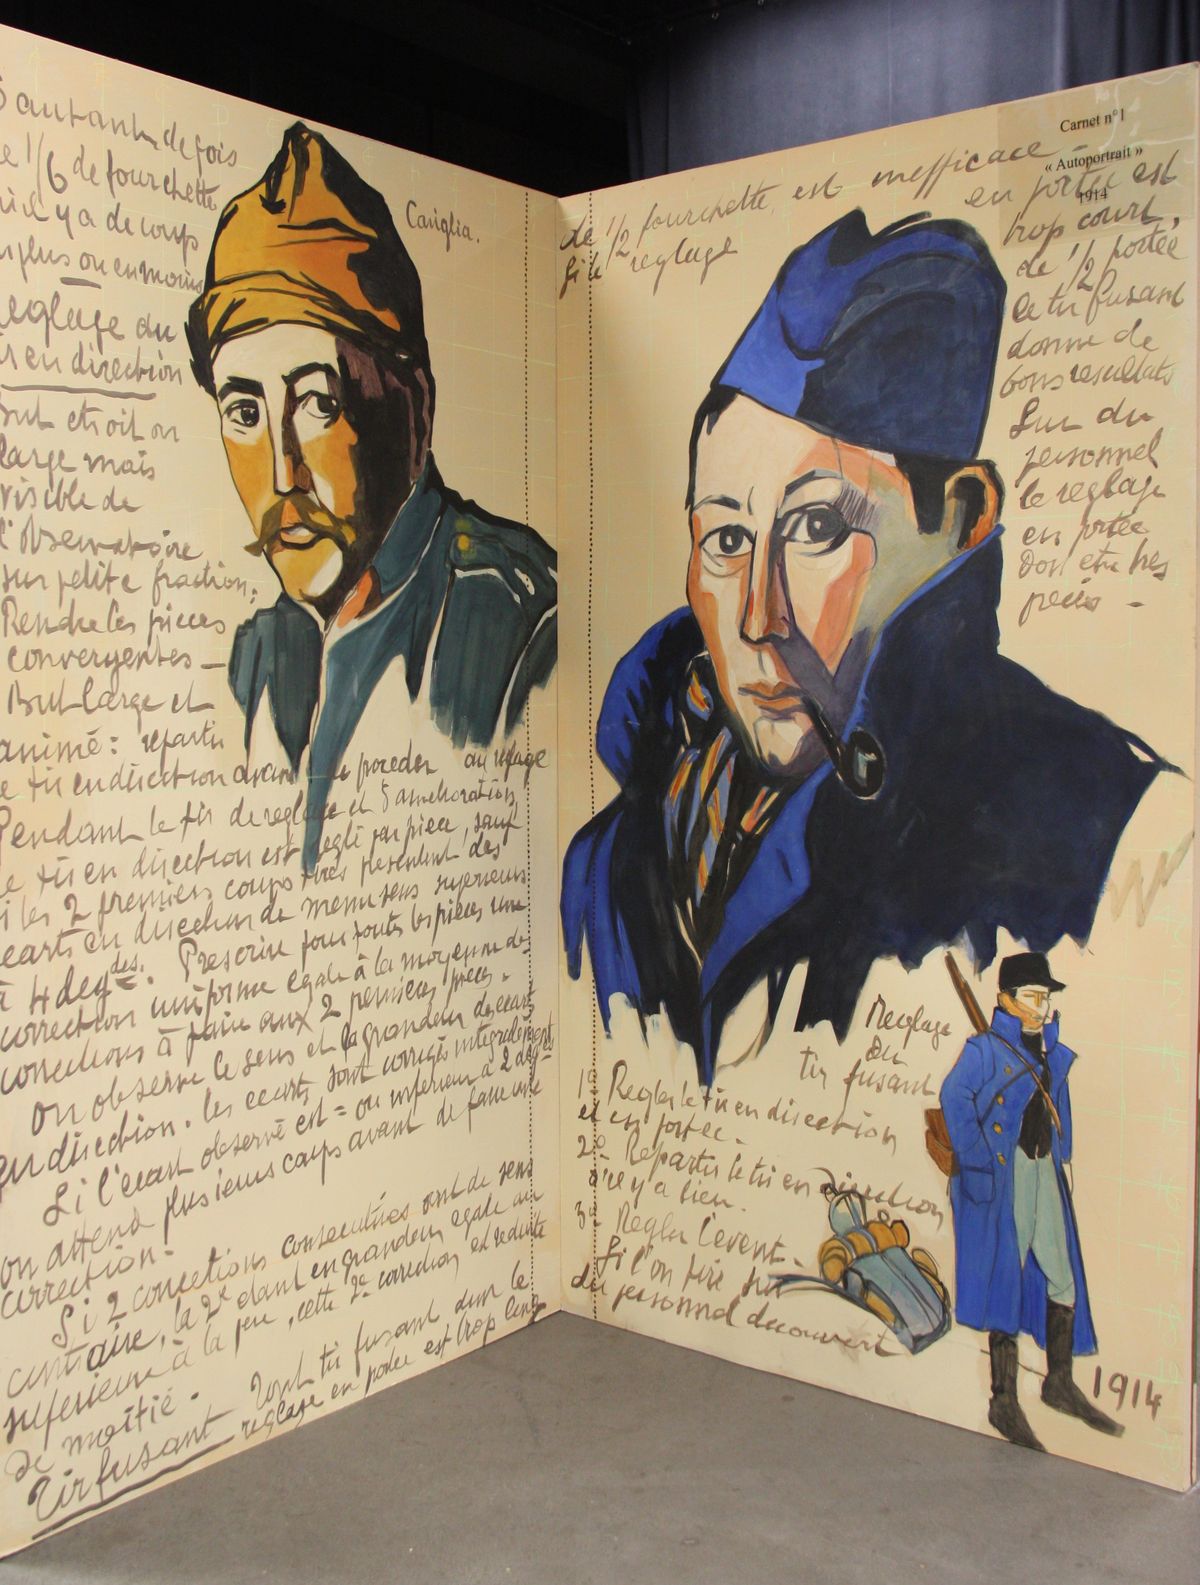 autant de fois
1/6 de fourchette
y a de coups
plus ou en moins
reglage du
en direction
But etroit ou
large mais
visible de
l'observatoire
sur petite fraction;
Rendre les pieces
convergentes —
But large et
animé: repartir
le tir en direction avant de proceder au reglage
Pendant le tir de reglage et d'amelioration,
le tir en direction est reglé par piece, sauf
si les 2 premiers coups tirés presentent des
ecarts en direction de meme sens superieurs
à 4 deg des. Prescrire pour toutes les pièces une
correction uniforme egale à la moyenne des
corrections à faire aux 2 premieres pieces.
On observe le sens et la grandeur des ecarts
en direction. les ecarts sont corrigés integralement
Si l'ecart observé est = ou inferieur à 2
on attend plusieurs coups avant de faire une
correction.
Si 2 corrections consecutives sont de sens
contraire, la 2e étant en grandeur egale ou
superieure à la 1ere, cette 2e correction est reduite
de moitié.
Tir fusant Tout tir fusant dont le
reglage en portée est trop long
Caviglia.
Carnet n°1
« Autoportrait »
1914
de 1/2 fourchette, est inefficace —
Si le reglage
en portée est
trop court,
de 1/2 portée
le tir fusant
donne de
bons resultats
Sur du
personnel
le reglage
en portée
Doit etre tres
precis —
Reglage
du
tir fusant
1° Regler le tir en direction
et en portée —
2° Repartir le tir en direction
s'il y a lieu.
3° Regler l'event.
Si l'on tire sur
du personnel decouvert
1914